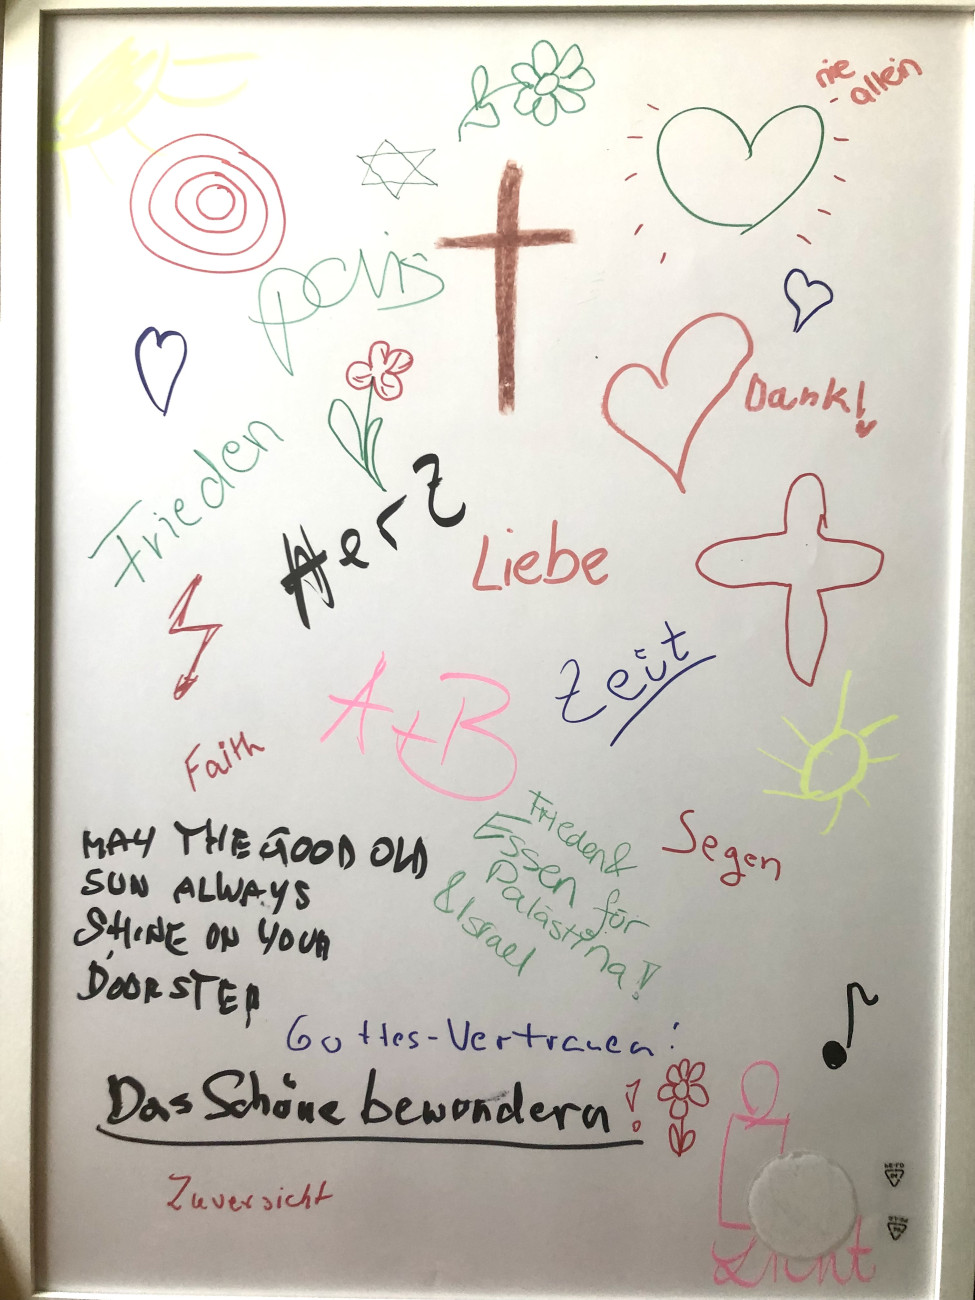 nie
allein
pcvis
Dank!
Frieden
Herz
Liebe
Zeit
A+B
Faith
Segen
MAY THE GOOD OLD
SUN ALWAYS
SHINE ON YOUR
DOORSTEP
Frieden &
Essen für
Palästina!
& Israel
Gottes-Vertrauen!
Das Schöne bewundern!
Zuversicht